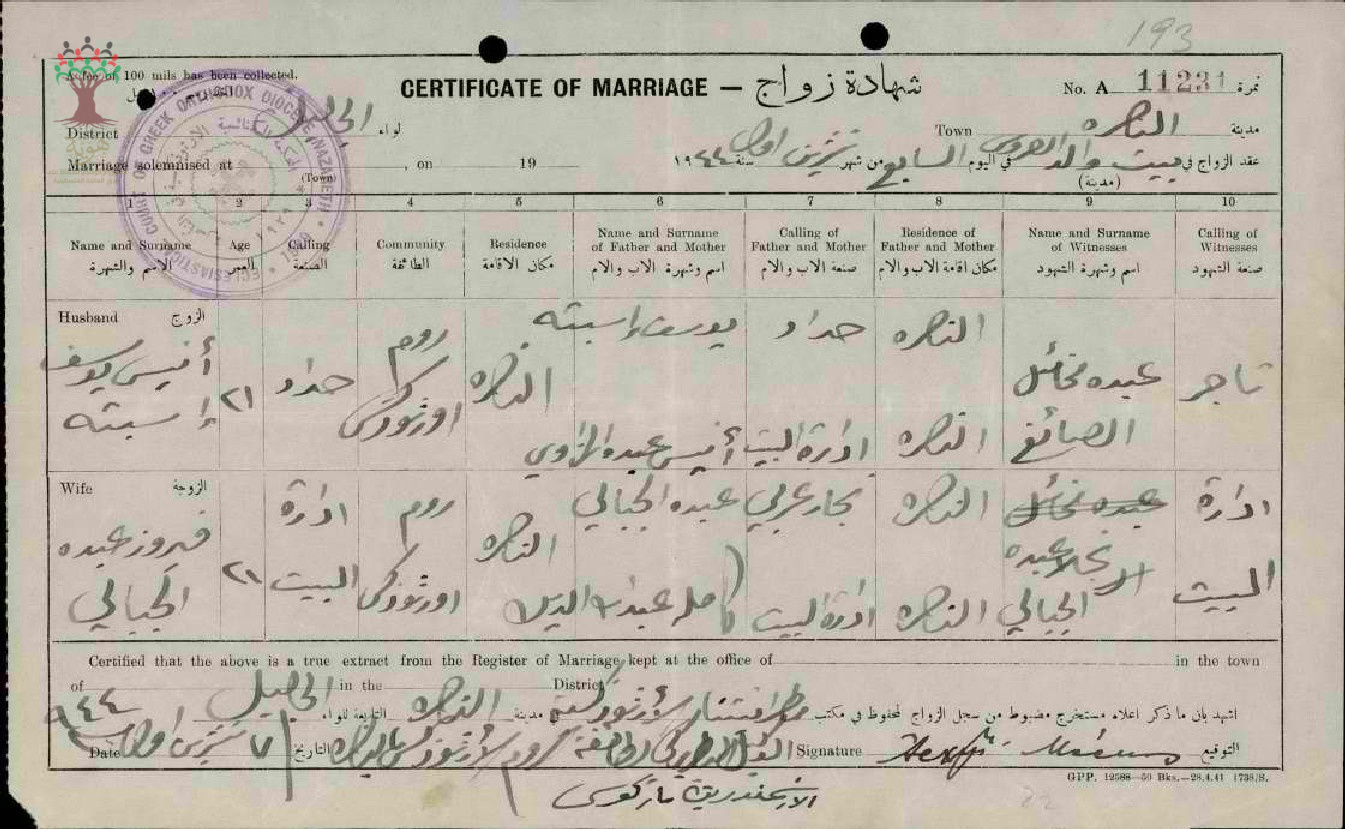 193
A fee of 100 mils has been collected.
CERTIFICATE OF MARRIAGE — شهادة زواج
No. A 11231 نمرة
District الجليل لواء
Town الناصرة مدينة
Marriage solemnised at , on 19
(Town)
عقد الزواج في ببيت والد العروس في اليوم السابع من شهر تشرين اول سنة ١٩٤٤
(مدينة)
COURT OF GREEK ORTHODOX DIOCESE NAZARETH
1 2 3 4 5 6 7 8 9 10
Name and Surname
الاسم والشهرة
Age
العمر
Calling
الصنعة
Community
الطائفة
Residence
مكان الاقامة
Name and Surname
of Father and Mother
اسم وشهرة الاب والام
Calling of
Father and Mother
صنعة الاب والام
Residence of
Father and Mother
مكان اقامة الاب والام
Name and Surname
of Witnesses
اسم وشهرة الشهود
Calling of
Witnesses
صنعة الشهود
Husband الزوج
أنيس يوسف
إسبته
٢١
حداد
روم
اورثوذكس
الناصرة
يوسف إسبته
حداد
الناصرة
أنيس عبده
ادارة البيت
الناصرة
عبده مخائل
الصائغ
تاجر
Wife الزوجة
فيروز عبده
الجبالي
٢١
ادارة
البيت
روم
اورثوذكس
الناصرة
عبده الجبالي
نجار عربي
الناصرة
ادارة البيت
الناصرة
عبده مخائل
عبده
الجبالي
ادارة
البيت
Certified that the above is a true extract from the Register of Marriage kept at the office of in the town
of in the District
اشهد بان ما ذكر اعلاه مستخرج مضبوط من سجل الزواج المحفوظ في مكتب
مدينة الناصرة التابعة للواء الجليل
Date
التاريخ
تشرين اول
٩٤٤
لطائفة الروم الأرثوذكس بالناصرة
Signature التوقيع
G.P.P. 12588—50 Bks.—28.4.41 1736/S.
ماركوس